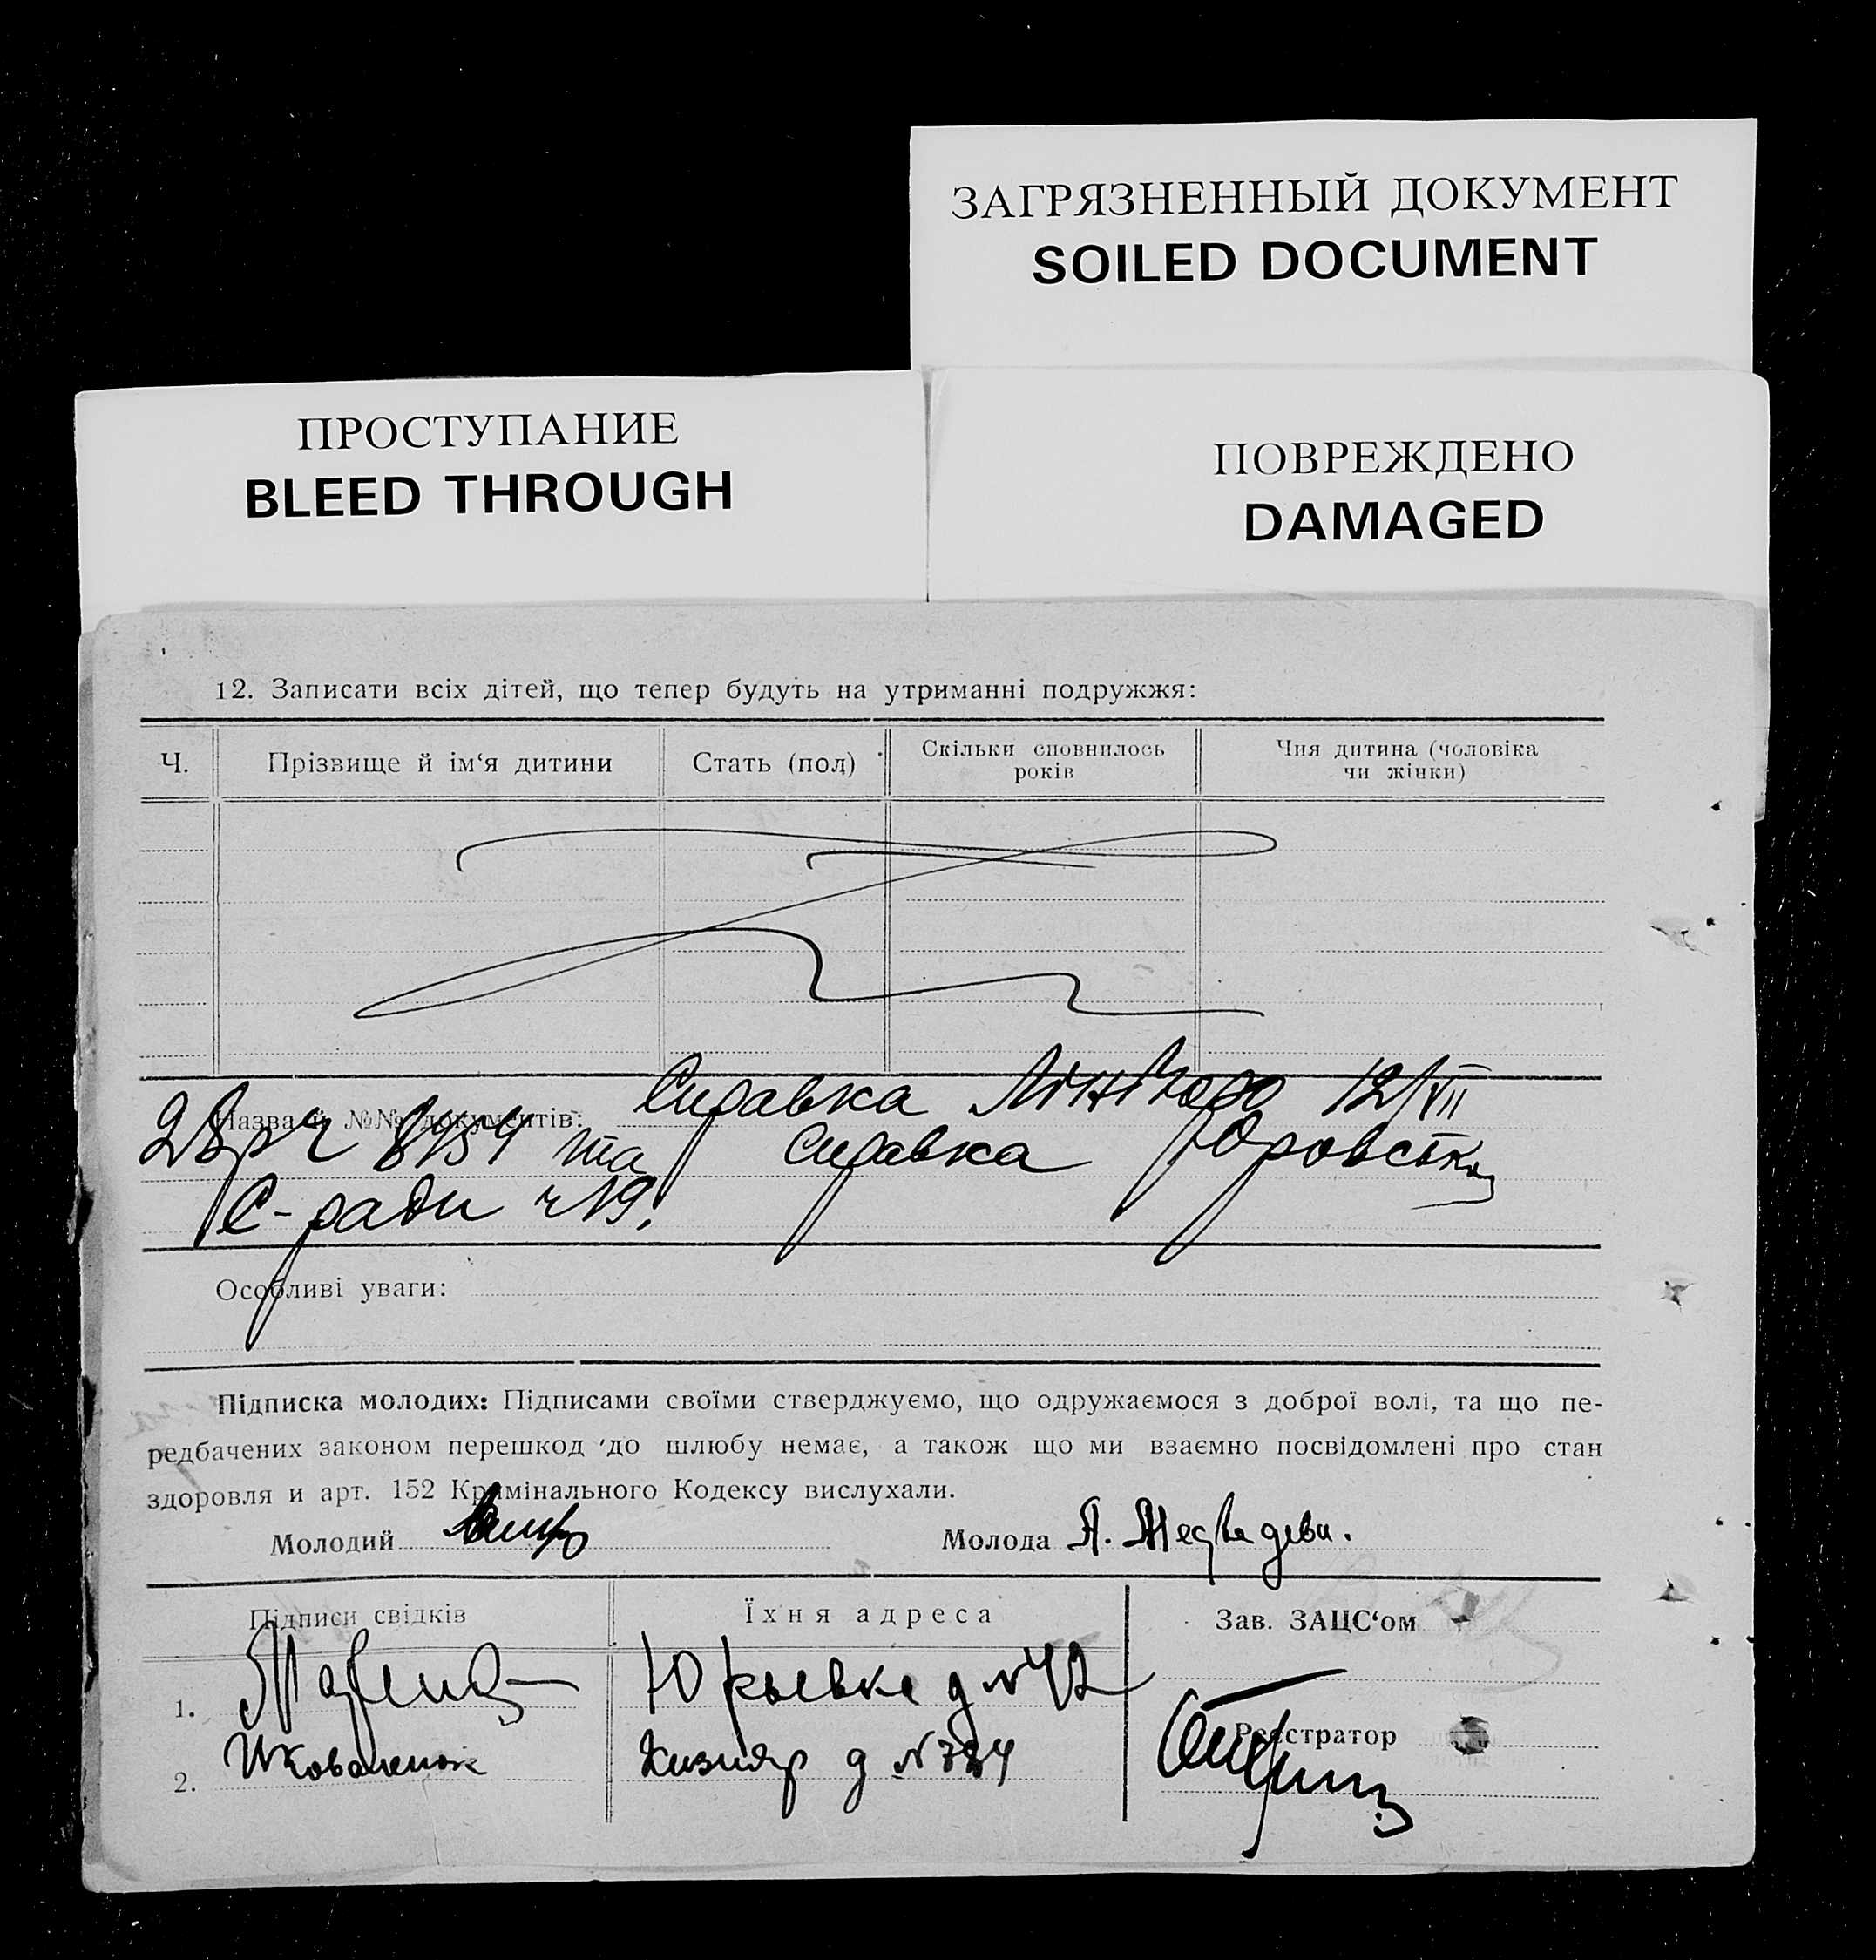 ЗАГРЯЗНЕННЫЙ ДОКУМЕНТ
SOILED DOCUMENT
ПРОСТУПАНИЕ
BLEED THROUGH
ПОВРЕЖДЕНО
DAMAGED
12. Записати всіх дітей, що тепер будуть на утриманні подружжя:
Ч. Прізвище й ім‘я дитини Стать (пол) Скільки сповнилось років Чия дитина (чоловіка чи жінки)
Назва й №№ документів: Справка 12/VII
28 р ч 8459 та справка Юровської
С-ради ч 19.
Особливі уваги:
Підписка молодих: Підписами своїми стверджуємо, що одружаємося з доброї волі, та що пе-
редбачених законом перешкод до шлюбу немає, а також що ми взаємно посвідомлені про стан
здоровля и арт. 152 Кримінального Кодексу вислухали.
Молодий Молода А. Медведева.
Підписи свідків Їхня адреса Зав. ЗАЦС‘ом
1. Юрьевка д №42
Реєстратор
2. Коваленко д №